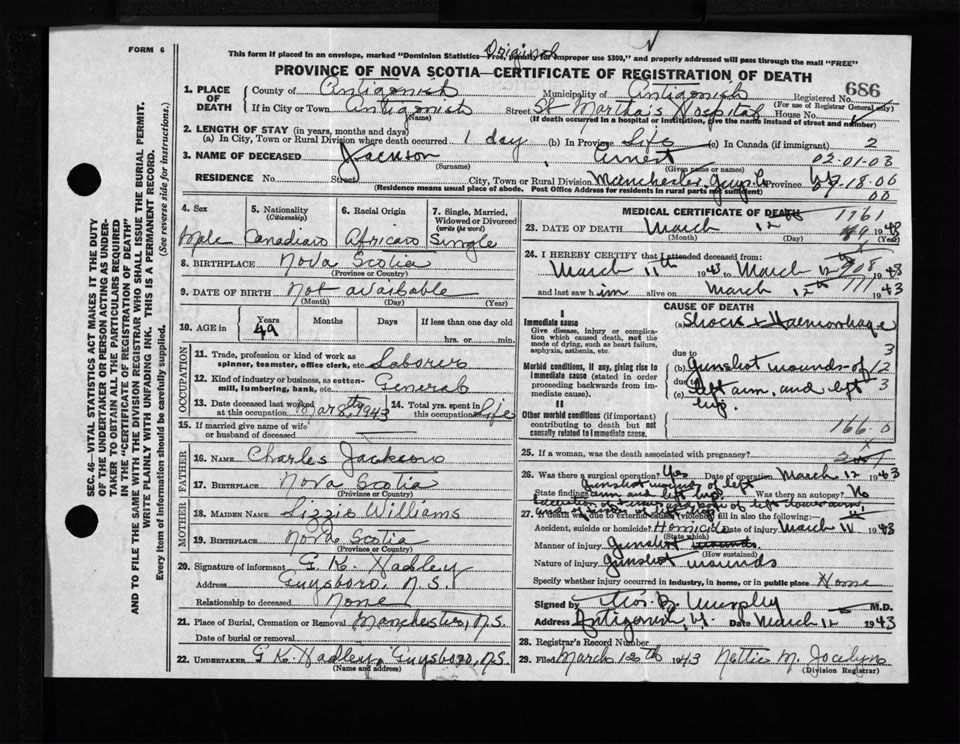 FORM 6
Original
This form if placed in an envelope, marked "Dominion Statistics—Free, penalty for improper use $300," and properly addressed will pass through the mail "FREE"
PROVINCE OF NOVA SCOTIA—CERTIFICATE OF REGISTRATION OF DEATH
SEC. 46—VITAL STATISTICS ACT MAKES IT THE DUTY
OF THE UNDERTAKER OR PERSON ACTING AS UNDER-
TAKER TO OBTAIN ALL THE PARTICULARS REQUIRED
IN THE "CERTIFICATE OF REGISTRATION OF DEATH"
AND TO FILE THE SAME WITH THE DIVISION REGISTRAR WHO SHALL ISSUE THE BURIAL PERMIT.
WRITE PLAINLY WITH UNFADING INK. THIS IS A PERMANENT RECORD.
Every item of information should be carefully supplied. (See reverse side for instructions.)
1. PLACE OF DEATH
County of Antigonish Municipality of Antigonish Registered No. 686
(For use of Registrar General only)
If in City or Town Antigonish Street St Martha's Hospital House No.
(Name) (If death occurred in a hospital or institution, give the name instead of street and number)
2. LENGTH OF STAY (in years, months and days)
(a) In City, Town or Rural Division where death occurred 1 day (b) In Province Life (c) In Canada (if immigrant) 2
3. NAME OF DECEASED Jackson Ernest 02-01-03
(Surname) (Given name or names)
RESIDENCE No. Street City, Town or Rural Division Manchester, Guys. Co Province
(Residence means usual place of abode. Post Office Address for residents in rural parts not sufficient)
4. Sex Male
5. Nationality (Citizenship) Canadian
6. Racial Origin African
7. Single, Married, Widowed or Divorced (write the word) Single
8. BIRTHPLACE Nova Scotia
(Province or Country)
9. DATE OF BIRTH Not available
(Month) (Day) (Year)
10. AGE in Years 49 Months Days If less than one day old hrs. or min.
OCCUPATION
11. Trade, profession or kind of work as spinner, teamster, office clerk, etc. Laborer
12. Kind of industry or business, as cotton-mill, lumbering, bank, etc. General
13. Date deceased last worked at this occupation Mar 8th 1943 14. Total yrs. spent in this occupation Life
15. If married give name of wife or husband of deceased
FATHER
16. NAME Charles Jackson
17. BIRTHPLACE Nova Scotia
(Province or Country)
MOTHER
18. MAIDEN NAME Lizzie Williams
19. BIRTHPLACE Nova Scotia
(Province or Country)
20. Signature of informant G. K. Hadley
Address Guysboro, N.S.
Relationship to deceased None
21. Place of Burial, Cremation or Removal Manchester, N.S.
Date of burial or removal
22. UNDERTAKER G K Hadley, Guysboro, N.S.
(Name and address)
MEDICAL CERTIFICATE OF DEATH
1161
23. DATE OF DEATH March 12
(Month) (Day) (Year)
24. I HEREBY CERTIFY that I attended deceased from:
March 11th 1943 to March 12
and last saw him alive on March 12th 1943
CAUSE OF DEATH
I
Immediate cause
Give disease, injury or complication which caused death, not the mode of dying, such as heart failure, asphyxia, asthenia, etc.
(a) Shock & Haemorrhage
Morbid conditions, if any, giving rise to immediate cause (stated in order proceeding backwards from immediate).
due to 3
(b) Gunshot wounds of 12
due to
(c) left arm, and left 3
hip.
II
Other morbid conditions (if important) contributing to death but not causally related to immediate cause.
166.0
25. If a woman, was the death associated with pregnancy?
26. Was there a surgical operation? Yes Date of operation March 12 1943
Gunshot wounds of left
State findings arm and left hip. Was there an autopsy? No
27. If death was due to external causes (violence) fill in also the following:
Accident, suicide or homicide? Homicide Date of injury March 11 1943
(State which)
Manner of injury Gunshot wounds.
(How sustained)
Nature of injury Gunshot wounds
Specify whether injury occurred in industry, in home, or in public place Home
Signed by Thos. B. Murphy M.D.
Address Antigonish, Date March 12 1943
28. Registrar's Record Number
29. Filed March 1943 Nettie M. Jocelyn
(Division Registrar)